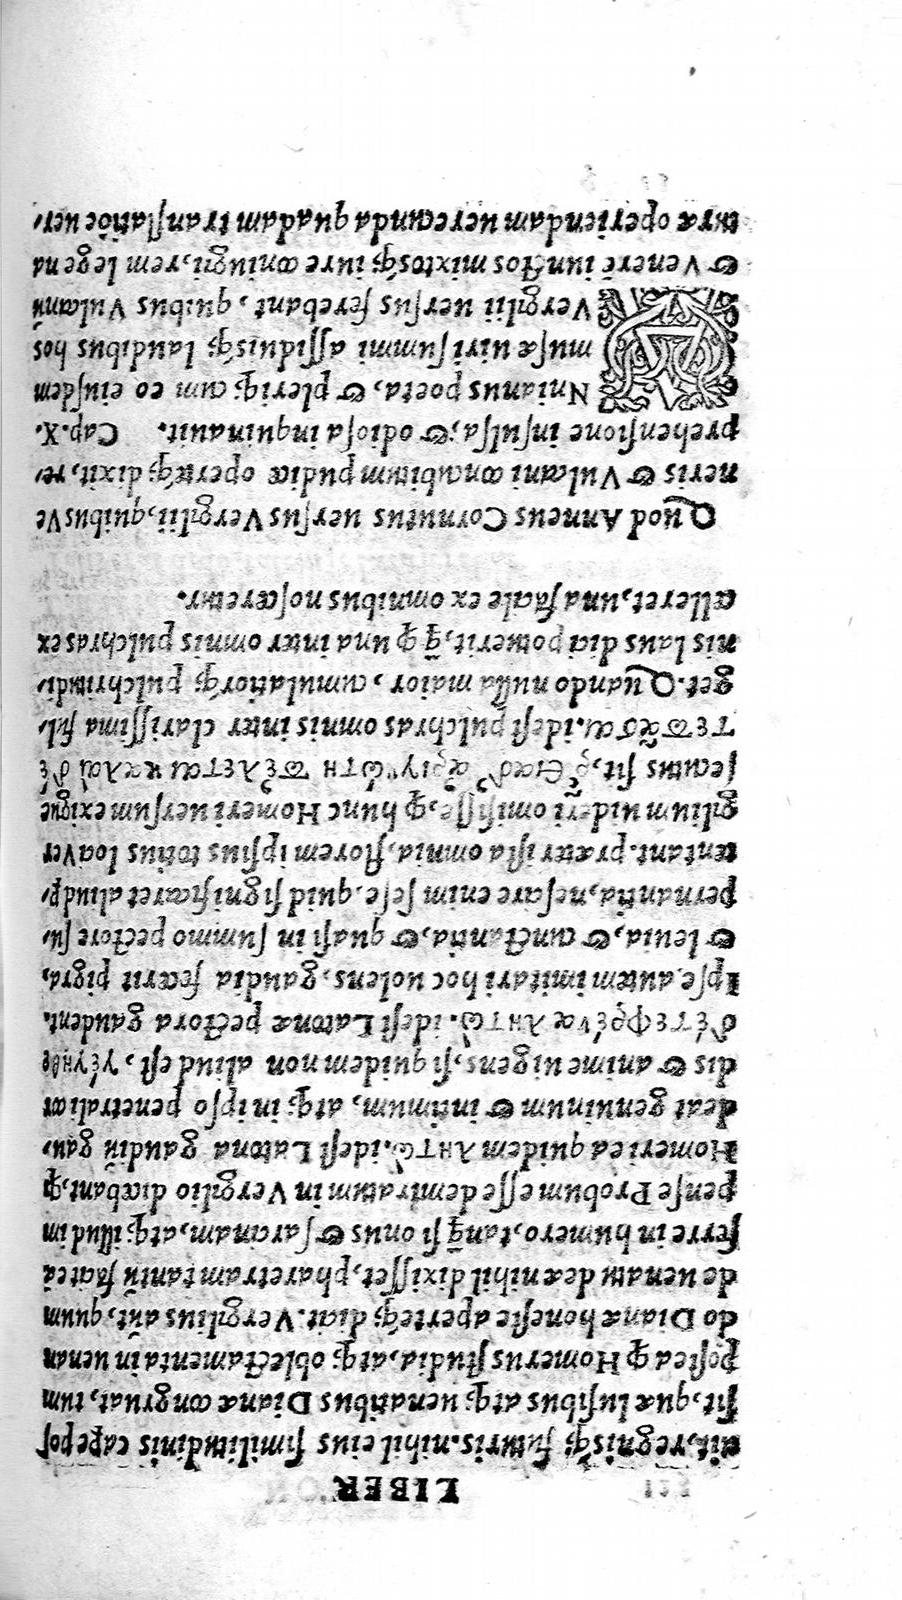 LIBER
uit, regnisq; futuris. nihil eius similitudinis capepos
sit, quæ lusibus atq; uenatibus Dianæ congruat, tum
postea ꝙ Homerus studia, atq; oblectamenta in uenan
do Dianæ honeste aperteq; dicit. Vergilius aūt, quum
de uenatu deæ nihil dixisset, pharetram tantū facit eā
ferre in humero, tanq̄ si onus & sarcinam, atq; illud im
pense Probum esse demiratum in Vergilio dicebant, ꝙ
Homerica quidem λητὼ. idest Latona gaudiū gau,
deat genuinum & intimum, atq; in ipso penetrali cor
dis & anime uigens, si quidem non aliud est, γέγηθε
δέ τε φρένα λητώ. idest Latonæ pectora gaudent.
Ipse autem imitari hoc uolens, gaudia fecerit pigra,
& leuia, & cunctantia, & quasi in summo pectore su,
pernantia, nescire enim sese. quid significaret aliud p,
tentant. præter ista omnia, florem ipsius totius loci Ver
gilium uideri omisisse, ꝙ hunc Homeri uersum exigue
secutus sit, ῥεῖα δ᾽ ἀριγνώτη πέλεται καλαὶ δέ
τε πᾶσαι. idest pulchras omnis inter clarissima ful,
get. Quando nulla maior, cumulatiorq; pulchritudi,
nis laus dici potuerit, q̄ ꝙ una inter omnis pulchras ex
celleret, una facile ex omnibus nosceretur.
Quod Anneus Cornutus uersus Vergilii, quibus Ve
neris & Vulcani concubitum pudice operteq; dixit, re,
prehensione insulsa, & odiosa inquinauit. Cap. X.
ANnianus poeta, & pleriq; cum eo eiusdem
musæ uiri summi assiduisq; laudibus hos
Vergilii uersus ferebant, quibus Vulcanū
& Venerē iunctos mixtosq; iure coniugii, rem lege na
turæ operiendam uerecunda quadam translatiōe uer,